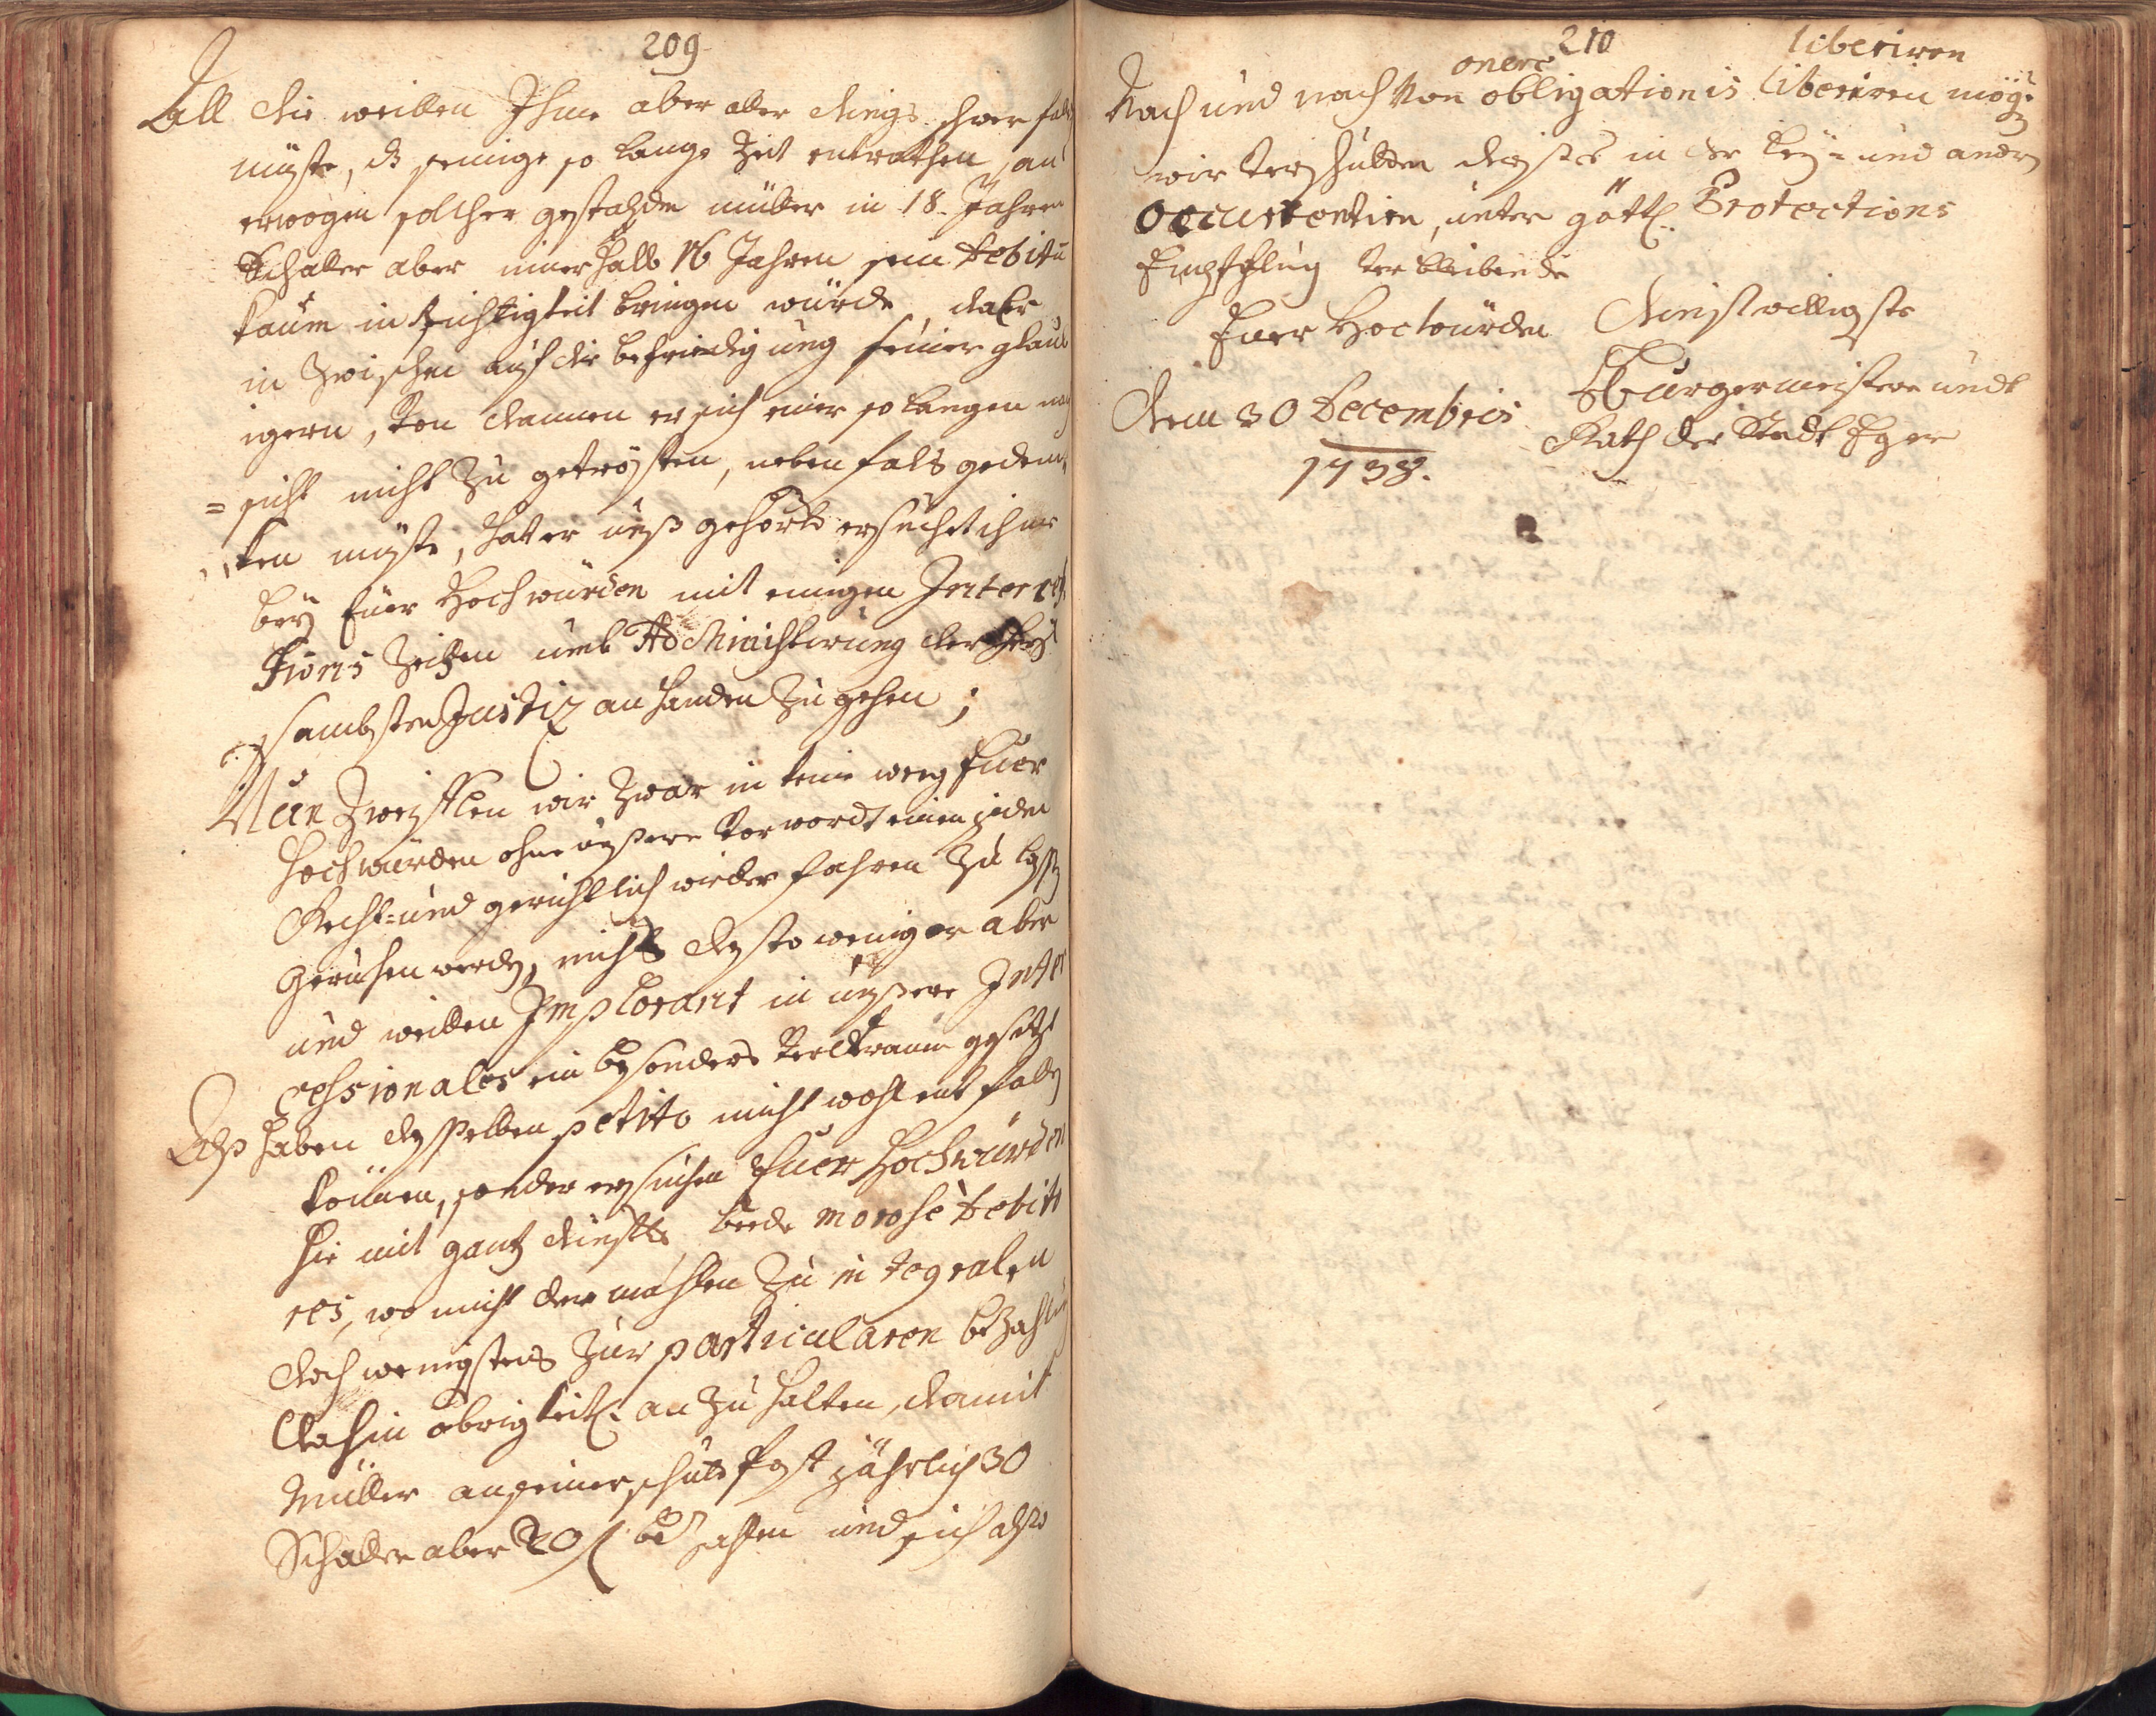 209
All die weillen Ihme aber aller dings schwer fall
müste, dß seinige so lange Zeit entrathen, an
erwogen solcher gestalden müller in 18. Jahren
Schaller aber innerhalb 16 Jahren sein debitu
kaum in Richtigkeit bringen würde, daer
in Zwischen auf die befriedigung seiner glaub
igern, von dannen er sich einer so langen nach
=sicht nicht zu getrösten, neben fals geden
ken müste, hat er unß gehorst ersuchet ihme
beÿ Euer Hochwürden mit einigen Interces
sions Zeillen umb Administrirung der
sambsten Justiz an handen zu gehen;
Nun Zweifflen wir zwar in keine weeg Euer
Hochwürden ohne unßere Vorwordt einem jeden
Recht- und gerichtlich wieder fahren zu lassen
Geruhen werden, nichts desto weniger aber
und weillen Implorant in unßere Inter
cessionales ein besonders Vertrauen gesetzt
Alß haben desselben petito nicht wohl entfallen
können, sonder ersuchen Euer Hochwürden
hie mit gantz dienstl. beede morose debito
res, wo nicht der mahlen zu integralen
doch wenigstens zur particularen bezahlung
dahin obrigkeitl. an zu halten, damit
Müller an seiner schuld post jährlich 30
Schaller aber 20 f. bezahlen und sich also
210
onere liberiren
Nach und nach Von obligationis liberiren möge
wir Verschulden dießes in der leÿ- und andern
Occurrentien, unter göttl. Protections
Empfehlung Verbleibende
Euer Hochwürden Dienstwilligste
Burgermeistere undt
Rath der Stadt Eger
Dem 30 Decembris
1738.